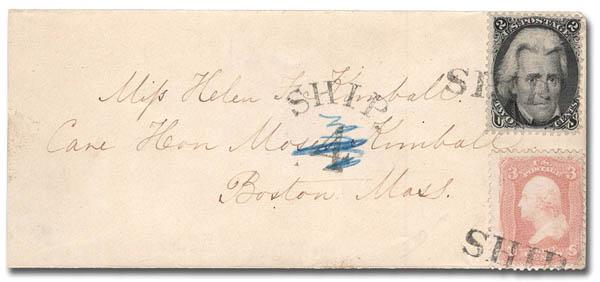 2 U.S. POSTAGE 2
SHIP
Miss Helen F. Kimball.
SHIP
4
Care Hon Moses Kimball
TWO CENTS
U S
3 U.S. POSTAGE 3
Boston Mass.
SHIP